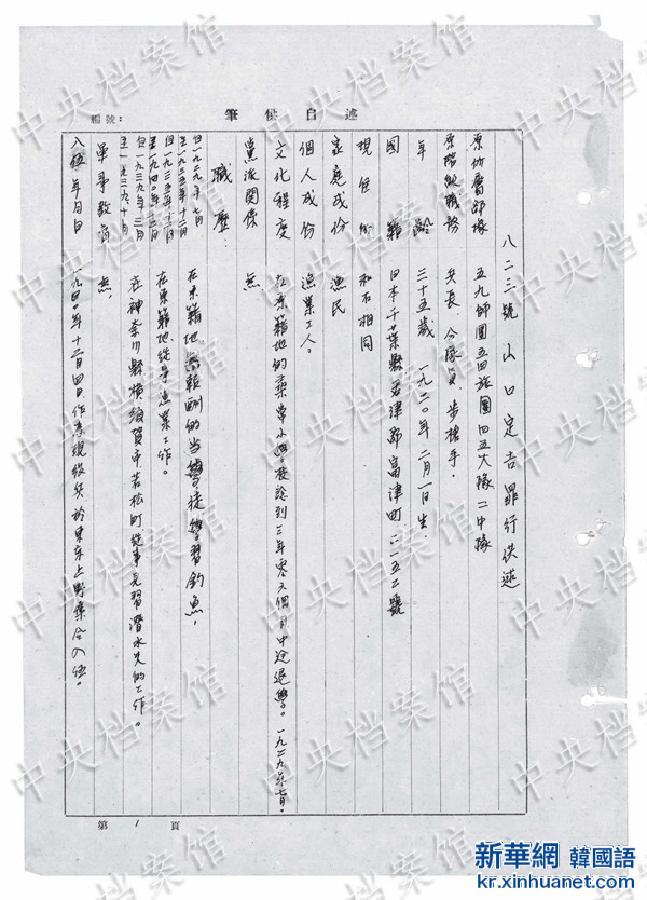 編號:
筆供自述
八二三號 山口定吉罪行供述
原所屬部隊 五九師團五四旅團四五大隊二中隊
原階級職務 兵長 分隊員。步槍手.
年齡 三十五歲 一九二〇年二月一日生.
國籍 日本千葉縣君津郡富津町二一五二號
現住所 和右相同
家庭成份 漁民
個人成份 漁業工人。
文化程度 在原籍地的尋常小學 念到三年零六個月中途退學。一九二九年七月。
黨派關係 無
職歷:
自一九二九年七月
至一九三五年十二月 在原籍地無報酬的当學徒學習釣魚,
自一九三五年十二月
在原籍地從事漁業工作。
自一九三九年 月
在神奈川縣橫須賀市若松町從事見習潛水夫的工作。
軍事教育 無.
入伍年月日 一九四〇年十二月四日作為現役兵於東京上野集合入伍。
第 1 頁
中央档案馆
新華網 韓國語
kr.xinhuanet.com